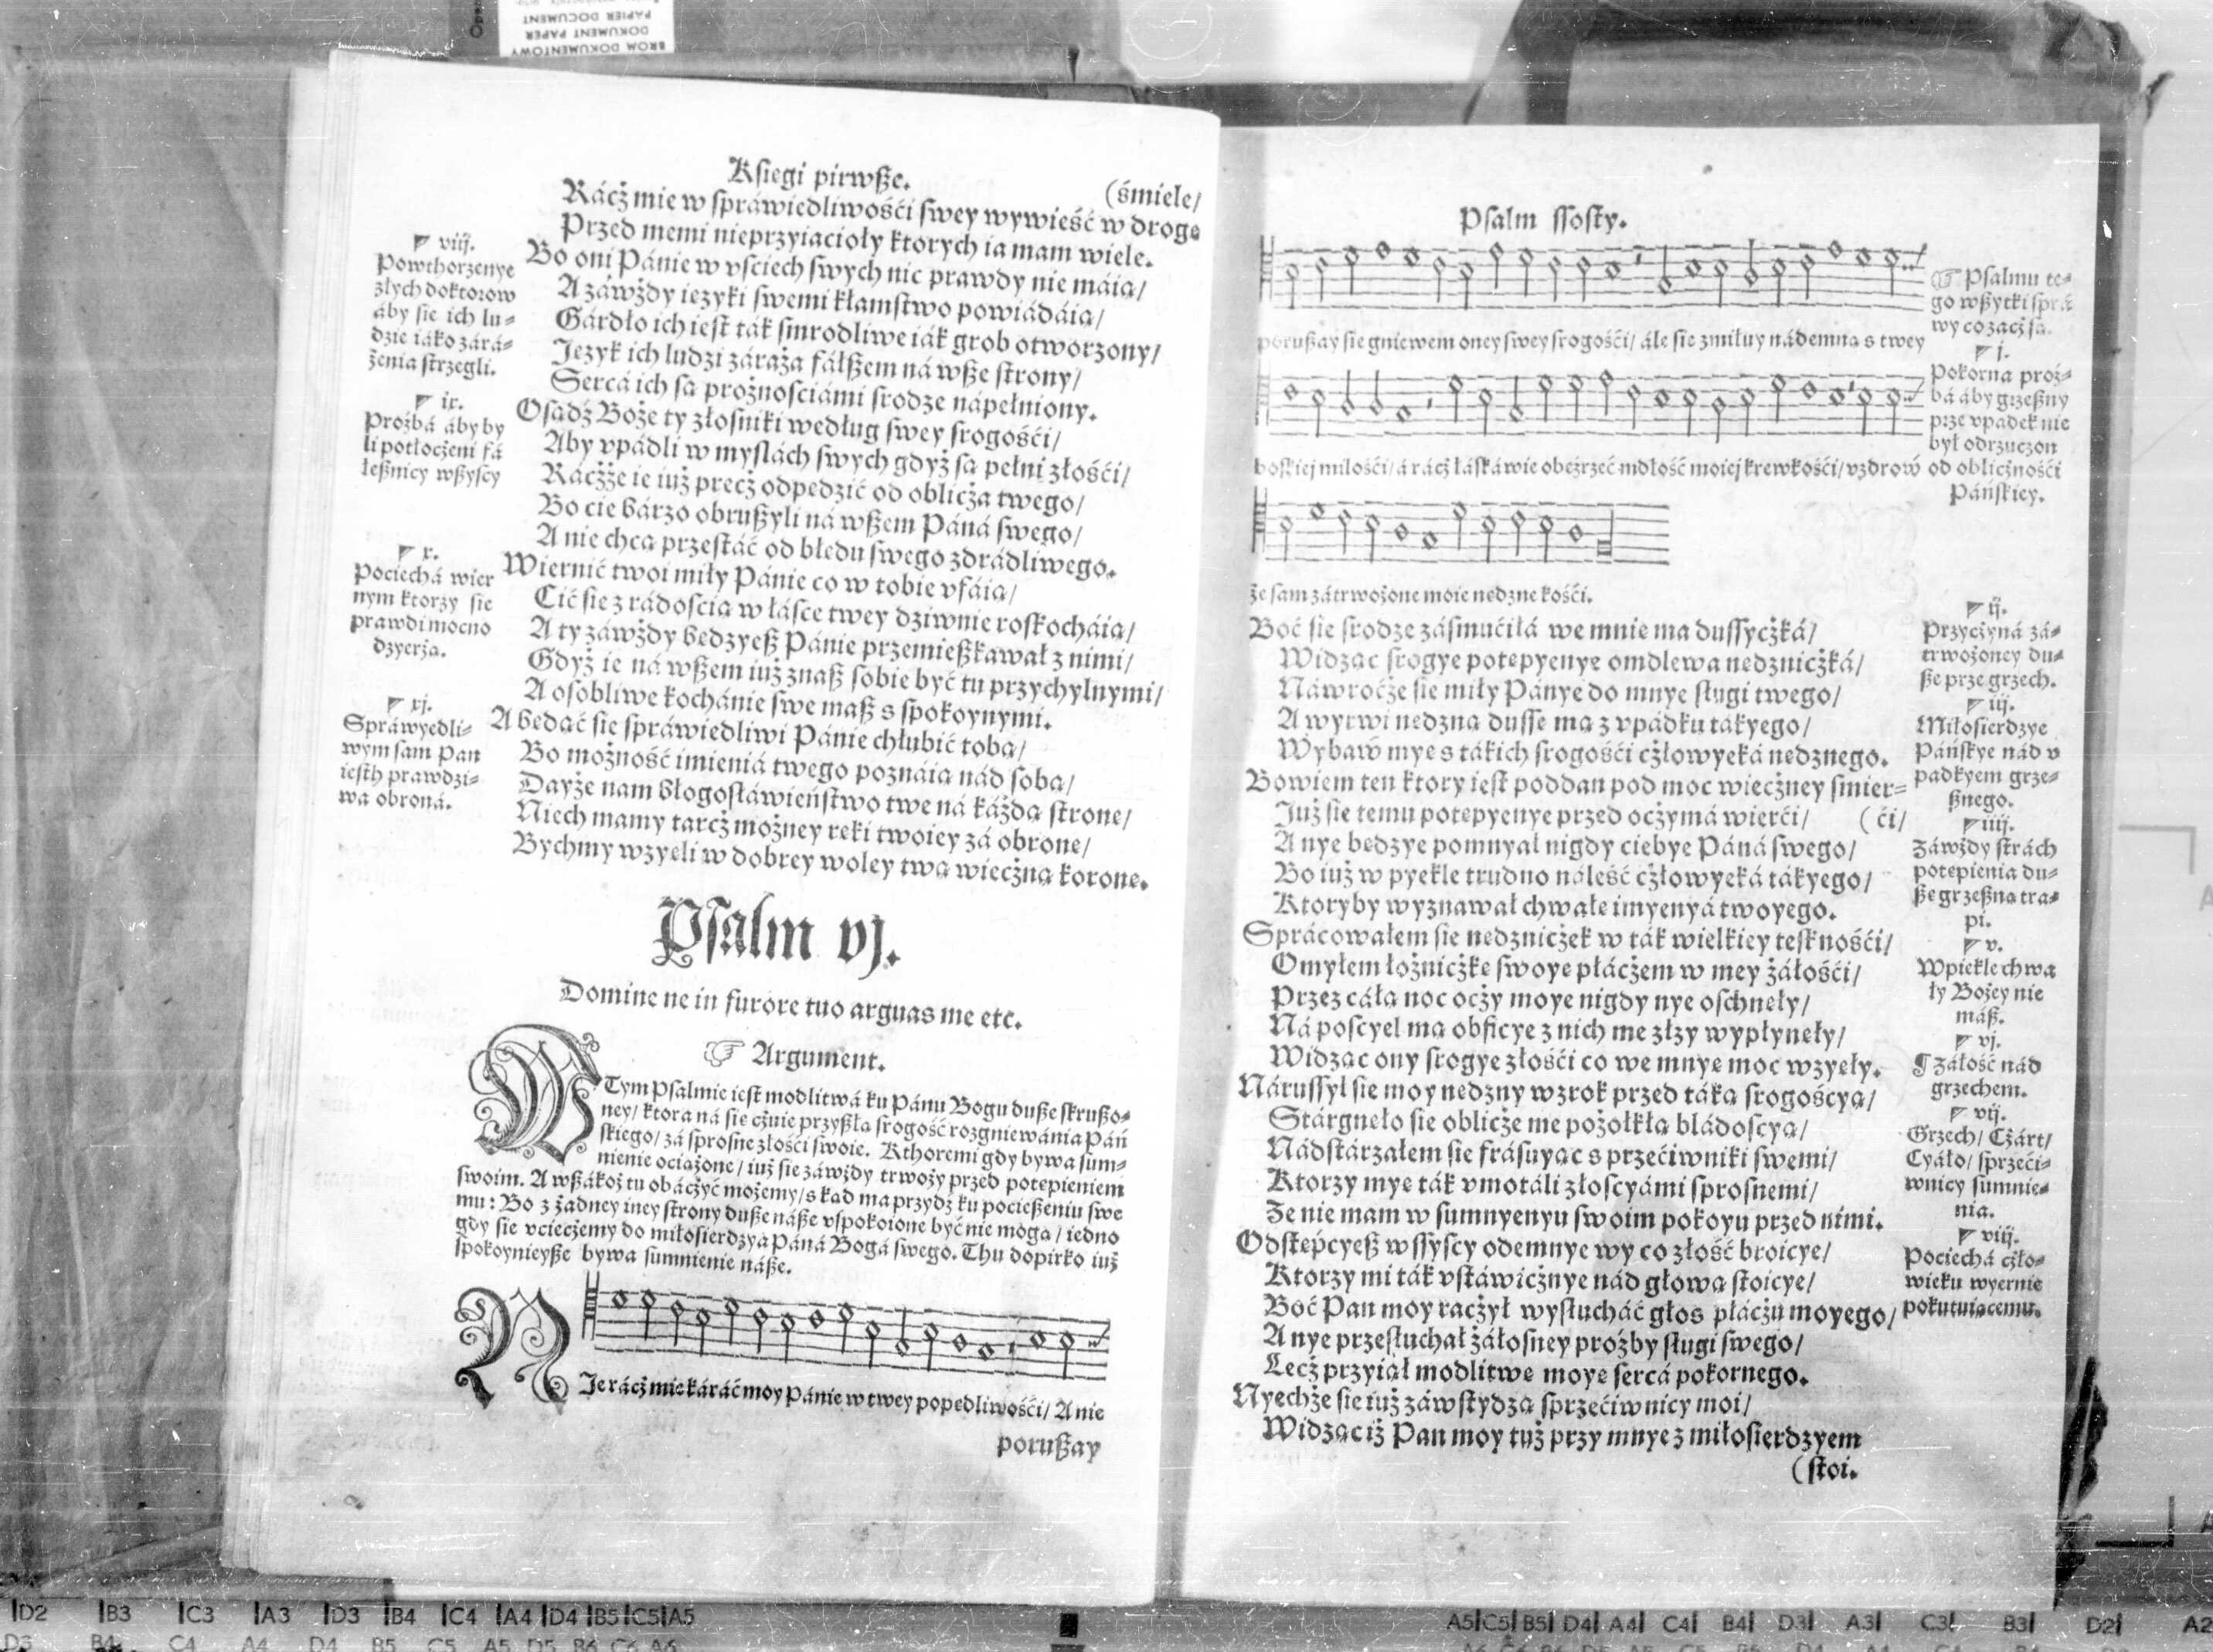 Kſiegi pirwſze.
(śmiele/
Rácż mie w ſpráwiedliwośći ſwey wywieść w drogę
Przed memi nieprzyiacioły ktorych ia mam wiele.
Bo oni Pánie w vſciech ſwych nic prawdy nie máią/
A záwżdy ięzyki ſwemi kłamſtwo powiádáią/
Gárdło ich ieſt ták ſmrodliwe iák grob otworzony/
Język ich ludzi záraża fáłſzem ná wſze ſtrony/
Sercá ich ſą prożnoſciámi ſrodze nápełniony.
Oſądź Boże ty złoſniki według ſwey ſrogośći/
Aby vpádli w myſlách ſwych gdyż ſą pełni złośći/
Rácżże ie iuż precż odpędzić od oblicża twego/
Bo cię bárzo obruſzyli ná wſzem Páná ſwego/
A nie chcą przeſtáć od błędu ſwego zdrádliwego.
Wiernić twoi miły Pánie co w tobie vfáią/
Cić ſie z rádoſcią w łáſce twey dziwnie roſkocháią/
A ty záwżdy będzyeſz Pánie przemieſzkawał z nimi/
Gdyż ie ná wſzem iuż znaſz ſobie być tu przychylnymi/
A oſobliwe kochánie ſwe maſz s ſpokoynymi.
A będąć ſie ſpráwiedliwi Pánie chłubić tobą/
Bo możność imieniá twego poznáią nád ſobą/
Dayże nam błogoſłáwieńſtwo twe ná káżdą ſtronę/
Niech mamy tarcż możney ręki twoiey zá obronę/
Bychmy wzyęli w dobrey woley twą wiecżną koronę.
viij.
Powthorzenye
złych doktorow
áby ſie ich lu-
dzie iáko zárá-
żenia ſtrzegli.
ix.
Proźbá áby by
li potłocżeni fá
łeſznicy wſzyſcy
x.
Pociechá wier
nym ktorzy ſie
prawdi mocno
dzyerżą.
xj.
Spráwyedli-
wym ſam Pan
ieſth prawdzi-
wa obroná.
Pſalm vj.
Domine ne in furore tuo arguas me etc.
Argument.
W Tym Pſalmie ieſt modlitwá ku Pánu Bogu duſze ſkruſzo-
ney/ ktora ná ſie cżuie przyſzłą ſrogość rozgniewánia Páń
ſkiego/ zá ſproſne złośći ſwoie. Kthoremi gdy bywa ſum-
nienie ociążone/ iuż ſie záwżdy trwoży przed potępieniem
ſwoim. A wſzákoż tu obácżyć możemy/ s kąd ma przydź ku pocieſzeniu ſwe
mu: Bo z żadney iney ſtrony duſze náſze vſpokoione być nie mogą/ iedno
gdy ſie vciecżemy do miłoſierdzya Páná Bogá ſwego. Thu dopirko iuż
ſpokoynieyſze bywa ſumnienie náſze.
NJe rácż mię káráć moy Pánie w twey popędliwośći/ A nie
poruſzay
Pſalm ſſoſty.
poruſzay ſie gniewem oney ſwey ſrogośći/ ále ſie zmiłuy nádemną s twey
boſkiej miłośći/ á rácż łáſkáwie obeźrzeć mdłość moiej krewkośći/ vzdrow
że ſam zátrwożone moie nędzne kośći.
Boć ſie ſrodze záſmućiłá we mnie ma duſſycżká/
Widząc ſrogye potępyenye omdlewa nędznicżká/
Náwroćże ſie miły Pánye do mnye ſługi twego/
A wyrwi nędzną duſſę mą z vpádku tákyego/
Wybaw mye s tákich ſrogośći cżłowyeká nędznego.
Bowiem ten ktory ieſt poddan pod moc wiecżney ſmier-
Już ſie temu potępyenye przed ocżymá wierći/ (ći/
A nye będzye pomnyał nigdy ciebye Páná ſwego/
Bo iuż w pyekle trudno náleść cżłowyeká tákyego/
Ktoryby wyznawał chwałę imyenyá twoyego.
Sprácowałem ſie nędznicżek w ták wielkiey teſknośći/
Omyłem łożnicżkę ſwoye płácżem w mey żáłośći/
Przez cáłą noc ocży moye nigdy nye oſchnęły/
Ná poſcyel mą obficye z nich me złzy wypłynęły/
Widząc ony ſrogye złośći co we mnye moc wzyęły.
Náruſſył ſie moy nędzny wzrok przed táką ſrogoścyą/
Stárgnęło ſie oblicże me pożołkłą bládoſcyą/
Nádſtárzałem ſie fráſuyąc s przećiwniki ſwemi/
Ktorzy mye ták vmotáli złoſcyámi ſproſnemi/
Że nie mam w ſumnyenyu ſwoim pokoyu przed nimi.
Odſtępćyeſz wſſyſcy odemnye wy co złość broicye/
Ktorzy mi ták vſtáwicżnye nád głową ſtoicye/
Boć Pan moy racżył wyſłucháć głos płácżu moyego/
A nye przeſłuchał żáłoſney proźby ſługi ſwego/
Lecż przyiął modlitwę moye ſercá pokornego.
Nyechże ſie iuż záwſtydzą ſprzećiwnicy moi/
Widząc iż Pan moy tuż przy mnye z miłoſierdzyem
(ſtoi.
Pſalmu te-
go wſzytki ſprá
wy co zacż ſą.
j.
Pokorna proź-
bá áby grzeſzny
prze vpadek nie
był odrzuczon
od oblicżnośći
Páńſkiey.
ij.
Przycżyná zá-
trwożoney du-
ſze prze grzech.
iij.
Miłoſierdzye
Páńſkye nád v
padkyem grze-
ſznego.
iiij.
Záwżdy ſtrách
potępienia du-
ſzę grzeſzną tra-
pi.
v.
W piekle chwa
ły Bożey nie
máſz.
vj.
Żáłość nád
grzechem.
vij.
Grzech/ Cżárt/
Cyáło/ ſprzeći-
wnicy ſumnie-
nia.
viij.
Pociechá cżło-
wieku wyernie
pokutuiącemu.
BROM DOKUMENTOWY
DOKUMENT PAPER
PAPIER DOCUMENT
D2 B3 C3 A3 D3 B4 C4 A4 D4 B5 C5 A5
A5 C5 B5 D4 A4 C4 B4 D3 A3 C3 B3 D2 A2